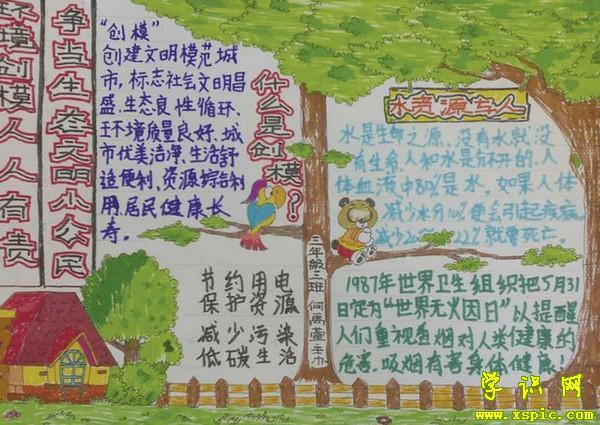 环境创模人人有责
争当生态文明小公民
“创模”
创建文明模范城
市,标志社会文明昌
盛.生态良性循环、
环境质量良好.城
市优美洁净、生活舒
适便利、资源综合利
用.居民健康长
寿。
什么是创模?
节约用电
保护资源
减少污染
低碳生活
三年级
水资源与人
水是生命之源、没有水就没
有生命.人和水是分不开的.人
体血液中80%是水.如果人体
减少水分10%便会引起疾病.
22%就要死亡.
1987年世界卫生组织把5月31
日定为“世界无烟日”以提醒
人们重视香烟对人类健康的
危害.吸烟有害身体健康!
学识网
www.xspic.com